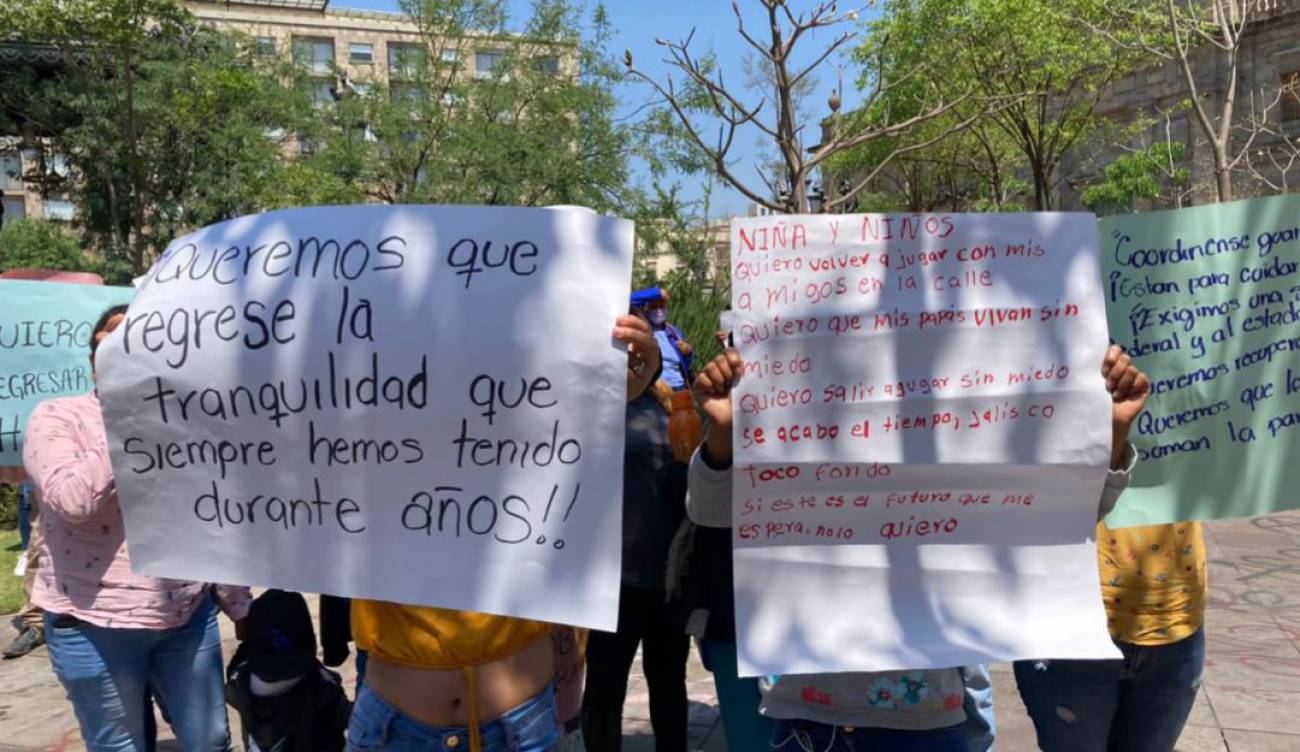 UIERO
EGRESAR
¡Queremos que
regrese la
tranquilidad que
siempre hemos tenido
durante años!!
NIÑA Y NIÑOS
Quiero volver a jugar con mis
a migos en la calle
Quiero que mis papás vivan sin
miedo
Quiero salir agugar sin miedo
se acabo el tiempo, jalisco
Toco fondo
Si este es el futuro que me
espera, no lo quiero
"Coordinense guar
¡Estan para cuidar
¡Exigimos una
deral y al estado
ueremos recupera
Queremos que lo
soman la par